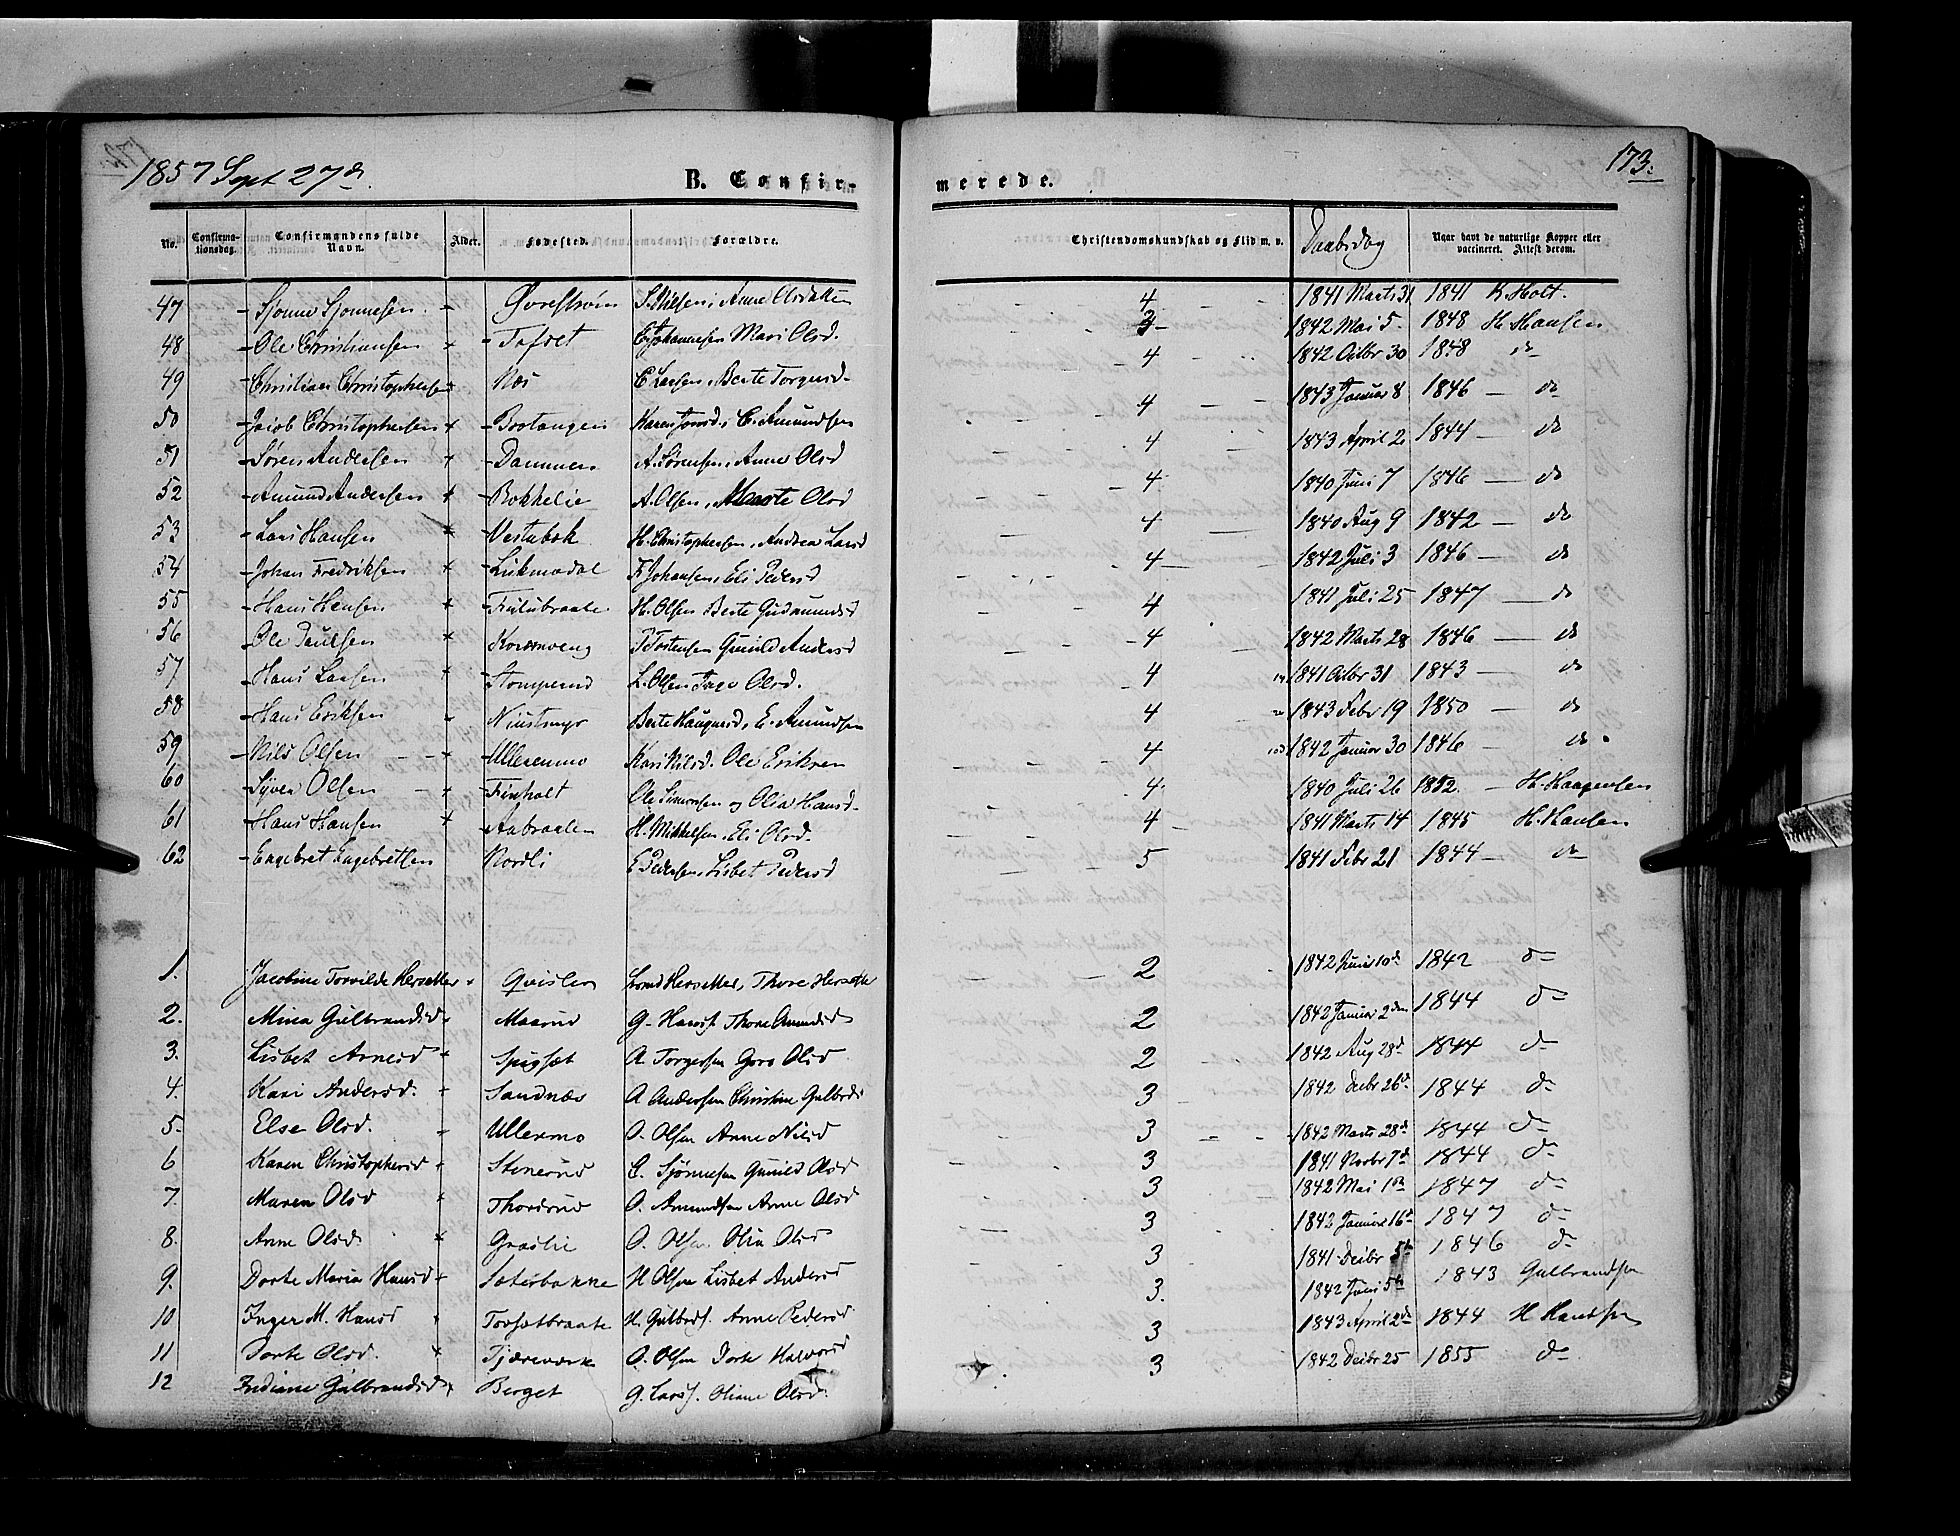 1857 Sept 27de. B. Confirmerede. 173.
No. Confirmationsdag. Confirmandens fulde Navn. Alder. Fødested. Forældre. Christendomskundskab og Flid m. v. Daabsdag Naar havt de naturlige Kopper eller vaccineret. Attest derom.
47 - Sjønne Sjønnesen - Øvrestrøm S. Nielsen, Anne Olsdatter 4 1841 Marts 31 1841 K. Holt.
48 - Ole Christiansen - Tofset C. Johannesen Mari Olsd. 3 1842 Mai 5. 1848 H. Hansen
49 - Christian Christophersen Næs C Larsen, Berte Torgersd. 4 1842 Octbr 30 1848 do
50 - Jacob Christophersen - Bootangen Karen Jonsd, C. Amundsen 4 1843 Januar 8 1846 - do
51 - Søren Andersen - Dammen A. Sørensen, Anne Olsd 4 1843 April 2. 1844 - do
52 - Amund Andersen - Bokkelie A. Olsen, Marte Olsd 4 1840 Juni 7 1846 - do
53 - Lars Hansen - Vestubak H. Christophersen, Andrea Larsd 4 1840 Aug 9 1842 - do
54 - Johan Fredriksen - F. Johansen, Eli Pedersd 4 1842 Juli 3 1846 - do
55 - Hans Hansen H. Olsen Berte Gudmundsd 4 1841 Juli 25 1847 - do
56 - Ole Paulsen - Kornmoeng P. Tostensen Gunild Andersd 4 1842 Marts 28 1846 - do
57 - Hans Larsen - Stomperud L. Olsen Olsd. 4 1841 Octbr 31 1843 - do
58 - Hans Eriksen - Niustmyr Berte Haagensd, E. Amundsen 4 1843 Febr 19 1850 - do
59 - Nils Olsen - - Ullerenmo Kari Nilsd. Ole Eriksen 4 1842 Januar 30 1846 - do
60 - Syver Olsen - - Finholt Ole Simensen og Olia Hansd. 4 1840 Juli 26 1852. - H. Haagensen
61 - Hans Hansen - Aabraaten H. Mikkelsen, Eli Olsd. 4 1841 Marts 14 1845 H. Hansen
62 - Engebret Engebretsen Nordli E Pedersen, Lisbet Pedersd 5 1841 Febr 21 1844 - do
1. Jacobine Torvilde Hersetter Qvislen Hersetter, Thore Hersetter 2 1842 Juni 10de 1842 do
2. Mina Gulbrandsd. Maarud G. Hansf. Thore Amundsd 2 1842 Januar 2den 1844 do
3. Lisbet Arnesd Spigset A Torgersen Goro Olsd 2 1842 Aug 28de 1844 do
4. Kari Andersd. Sandnæs A Andersen Christine Gulbrds 3 1842 Decbr 26de 1844 do
5. Else Olsd. Ullermo O. Olsen Anne Nilsd 3 1842 Marts 28de 1844 do
6 Karen Christophersd Stenerud C. Sjønnesen Gunild Olsd 3 1841 Novbr 7de 1844 do
7. Maren Olsd Thordrud O. Amundsen Anne Olsd 3 1842 Mai 1ste 1847 do
8. Anne Olsd. Graslie O. Olsen Olia Olsd 3 1842 Januar 16de 1847 do
9. Dorte Maria Hansd Sæterbakke H Olsen Lisbet Andersd 3 1841 Decbr 5te 1846 do
10 Inger M. Hansd Torsætbraate H. Gulbrds. Anne Pedersd. 3. 1842 Juni 5te 1843 Gulbrandsen
11 Dorte Olsd. Tjæreværke O. Olsen Dorte Halvorsd 3 1843 April 2de 1844 H Hansen
12 Indiane Gulbrandsd Berget G. Larsf. Oliane Olsd. 3 1842 Decbr 25 1855 do